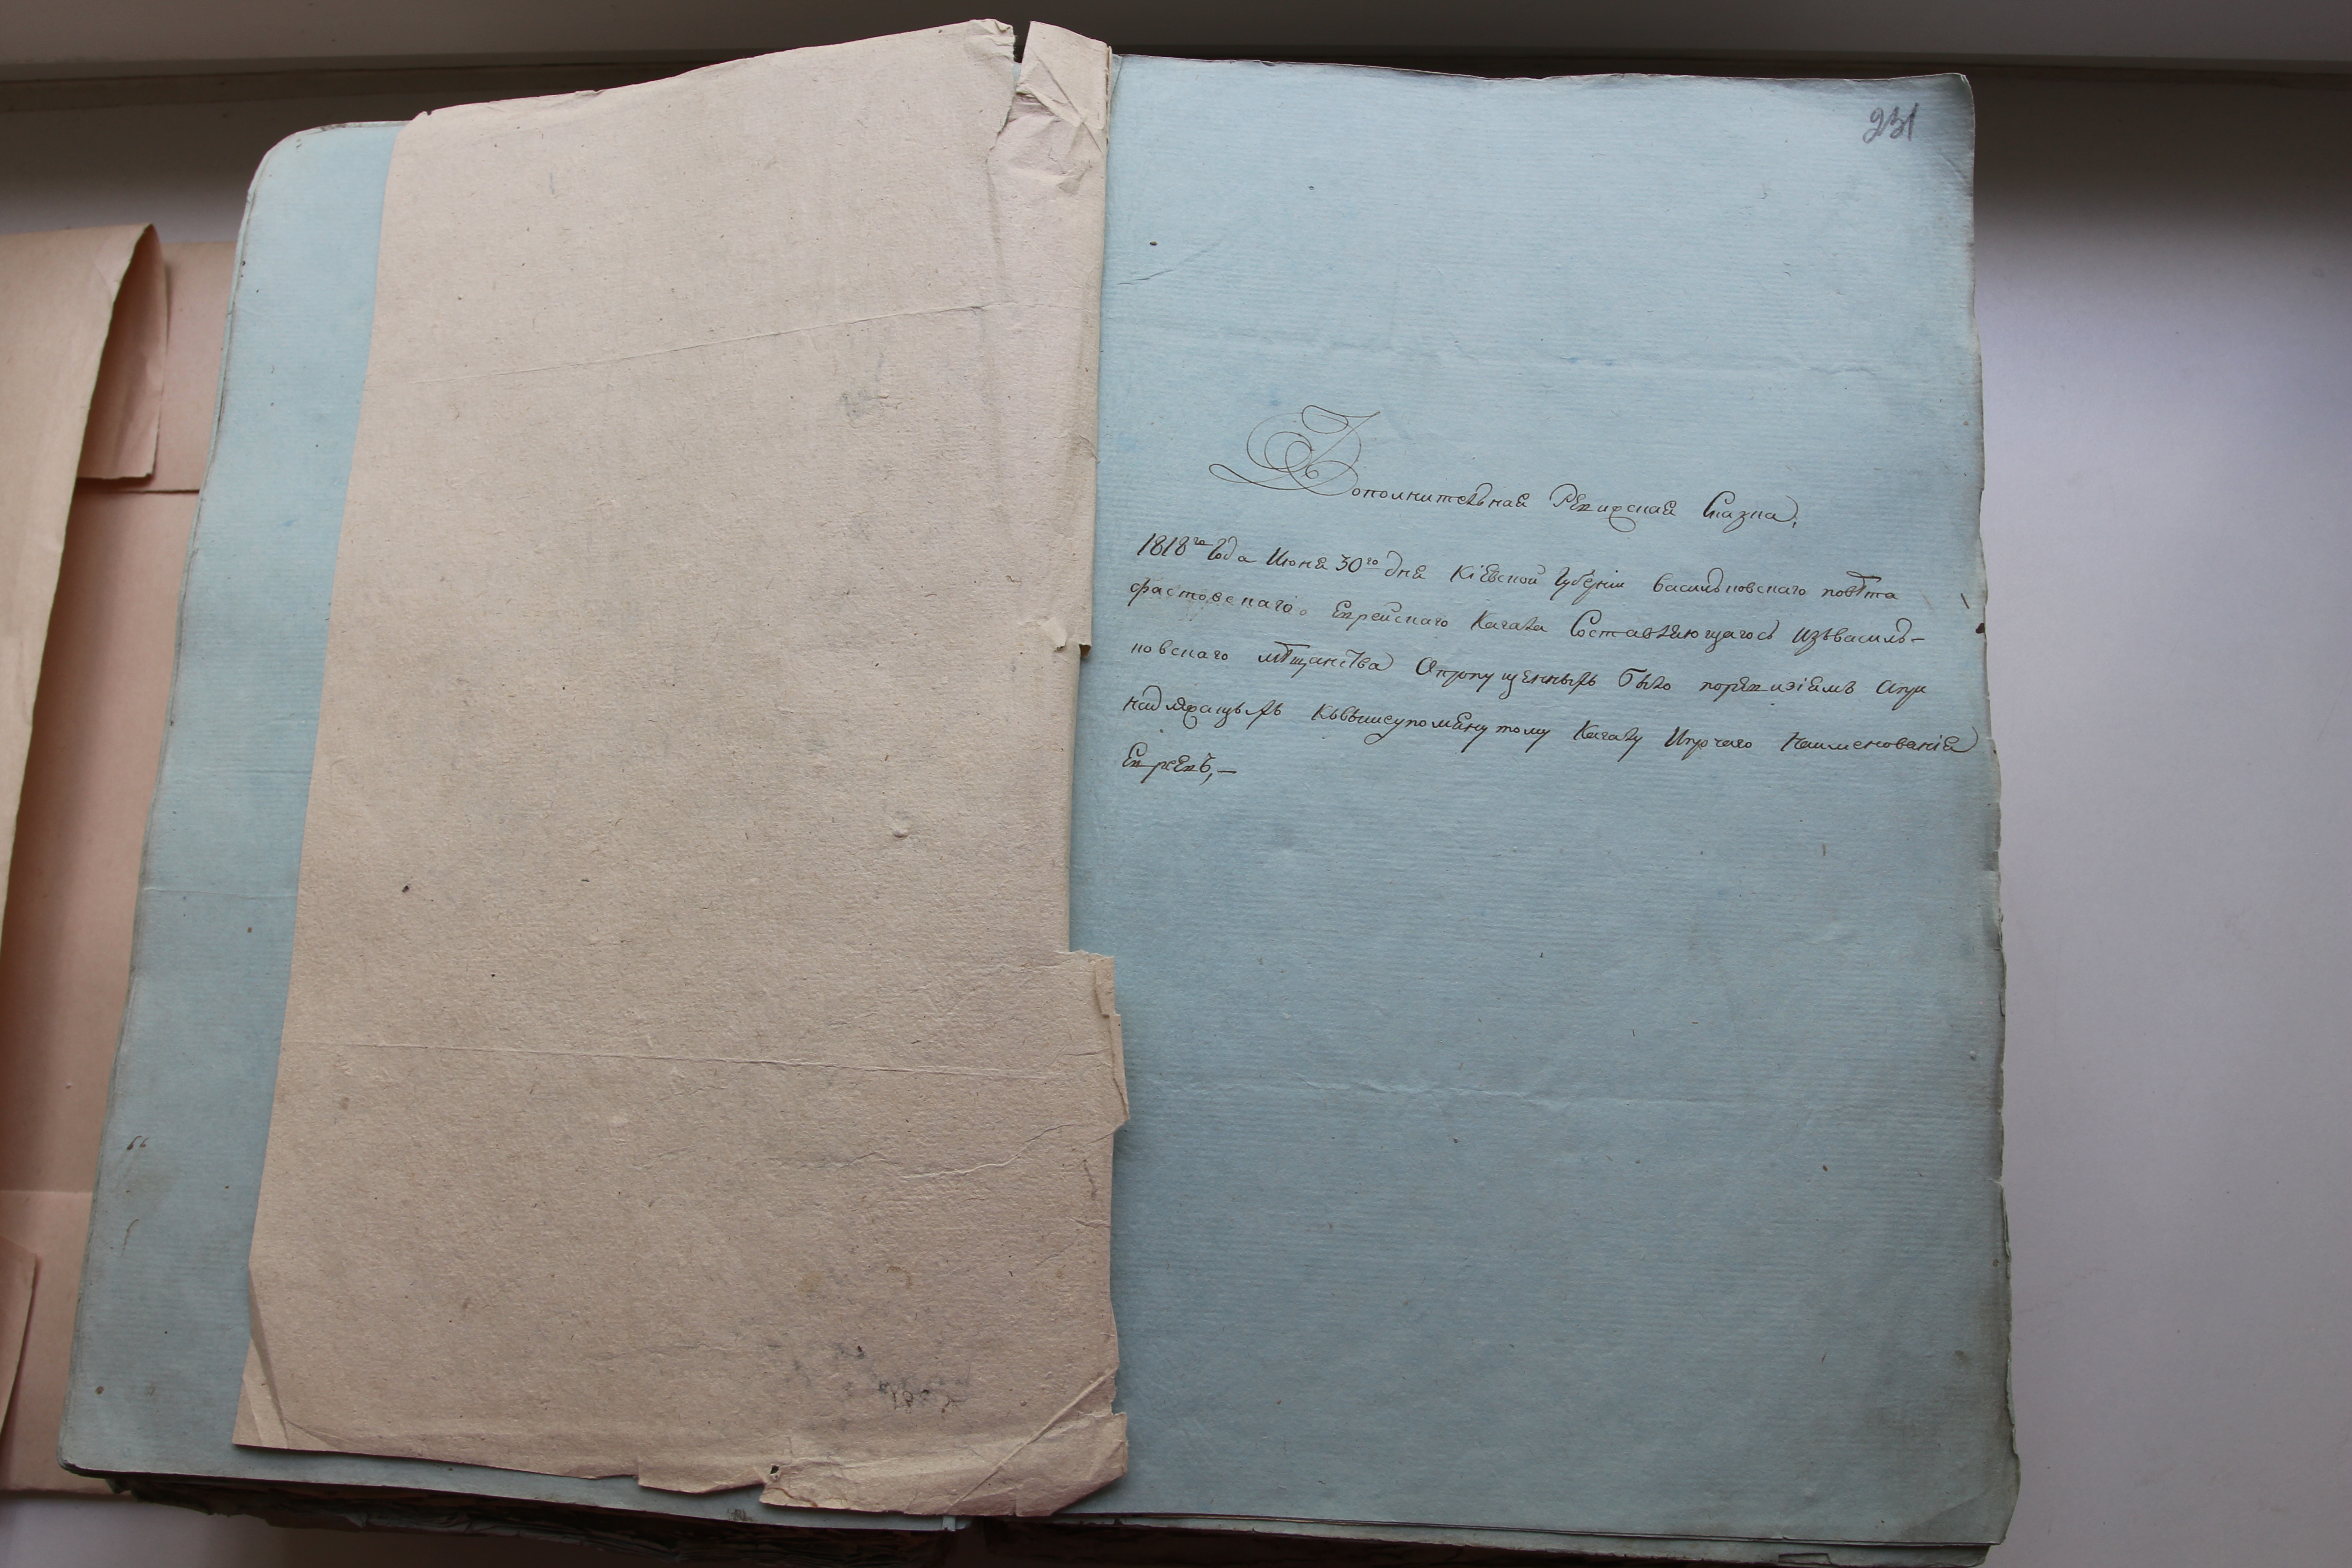 231
Дополнительная Ревизская Сказка,
1818го Года Июня 30го дня Кіевской Губерніи васильковскаго повѣта
фастовскаго Еврейскаго Кагала Составляющагось Изъвасиль-
ковскаго мѣщанства Опропущенныхъ было поревизіямъ апри
надляжащыхъ Квышеупомянутому Кагалу Ипрочаго Наименованія
Еврея,—